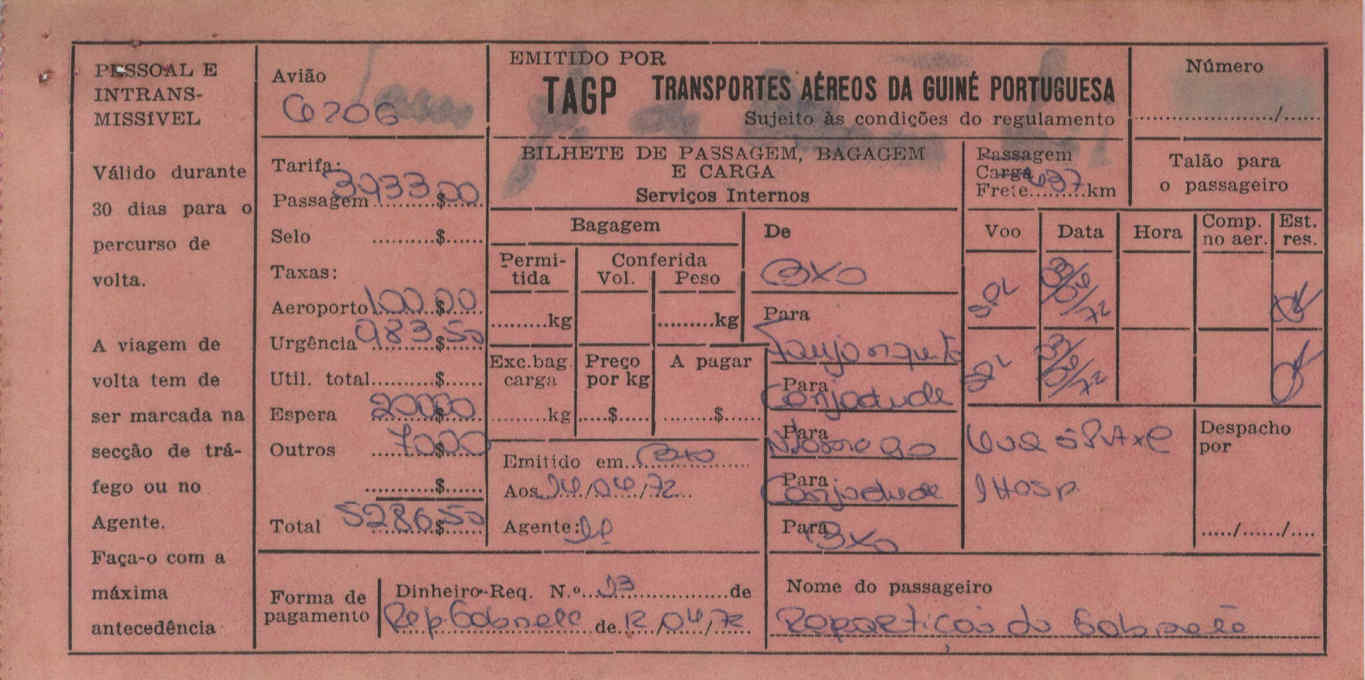 PESSOAL E
INTRANS-
MISSIVEL
Válido durante
30 dias para o
percurso de
volta.
A viagem de
volta tem de
ser marcada na
secção de trá-
fego ou no
Agente.
Faça-o com a
máxima
antecedência
Avião
Tarifa:
Passagem 3933$00
Selo ..........$......
Taxas:
Aeroporto 100$00
Urgência 983$50
Util. total..........$......
Espera 200$00
Outros 70$00
..........$......
Total 5286$50
EMITIDO POR
TAGP TRANSPORTES AÉREOS DA GUINÉ PORTUGUESA
Sujeito às condições do regulamento
BILHETE DE PASSAGEM, BAGAGEM
E CARGA
Serviços Internos
Bagagem
Permi-
tida
Conferida
Vol. Peso
.........kg .........kg
Exc.bag.
carga
Preço
por kg
A pagar
.........kg ....$...... ........$......
Emitido em BXO
Aos 14/04/72
Agente:
Número
................./......
Passagem
Carga
Frete 437 km
Talão para
o passageiro
De
BXO
Para
Para
Canjadude
Para
Para
Canjadude
Para BXO
Voo Data Hora Comp.
no aer. Est.
res.
SPL 13/04/72 OK
SPL 13/04/72 OK
Despacho
por
...../....../....
Forma de
pagamento
Dinheiro-Req. N.º 13 de
Rep Gabinete de 12/04/72
Nome do passageiro
Repartição do Gabinete